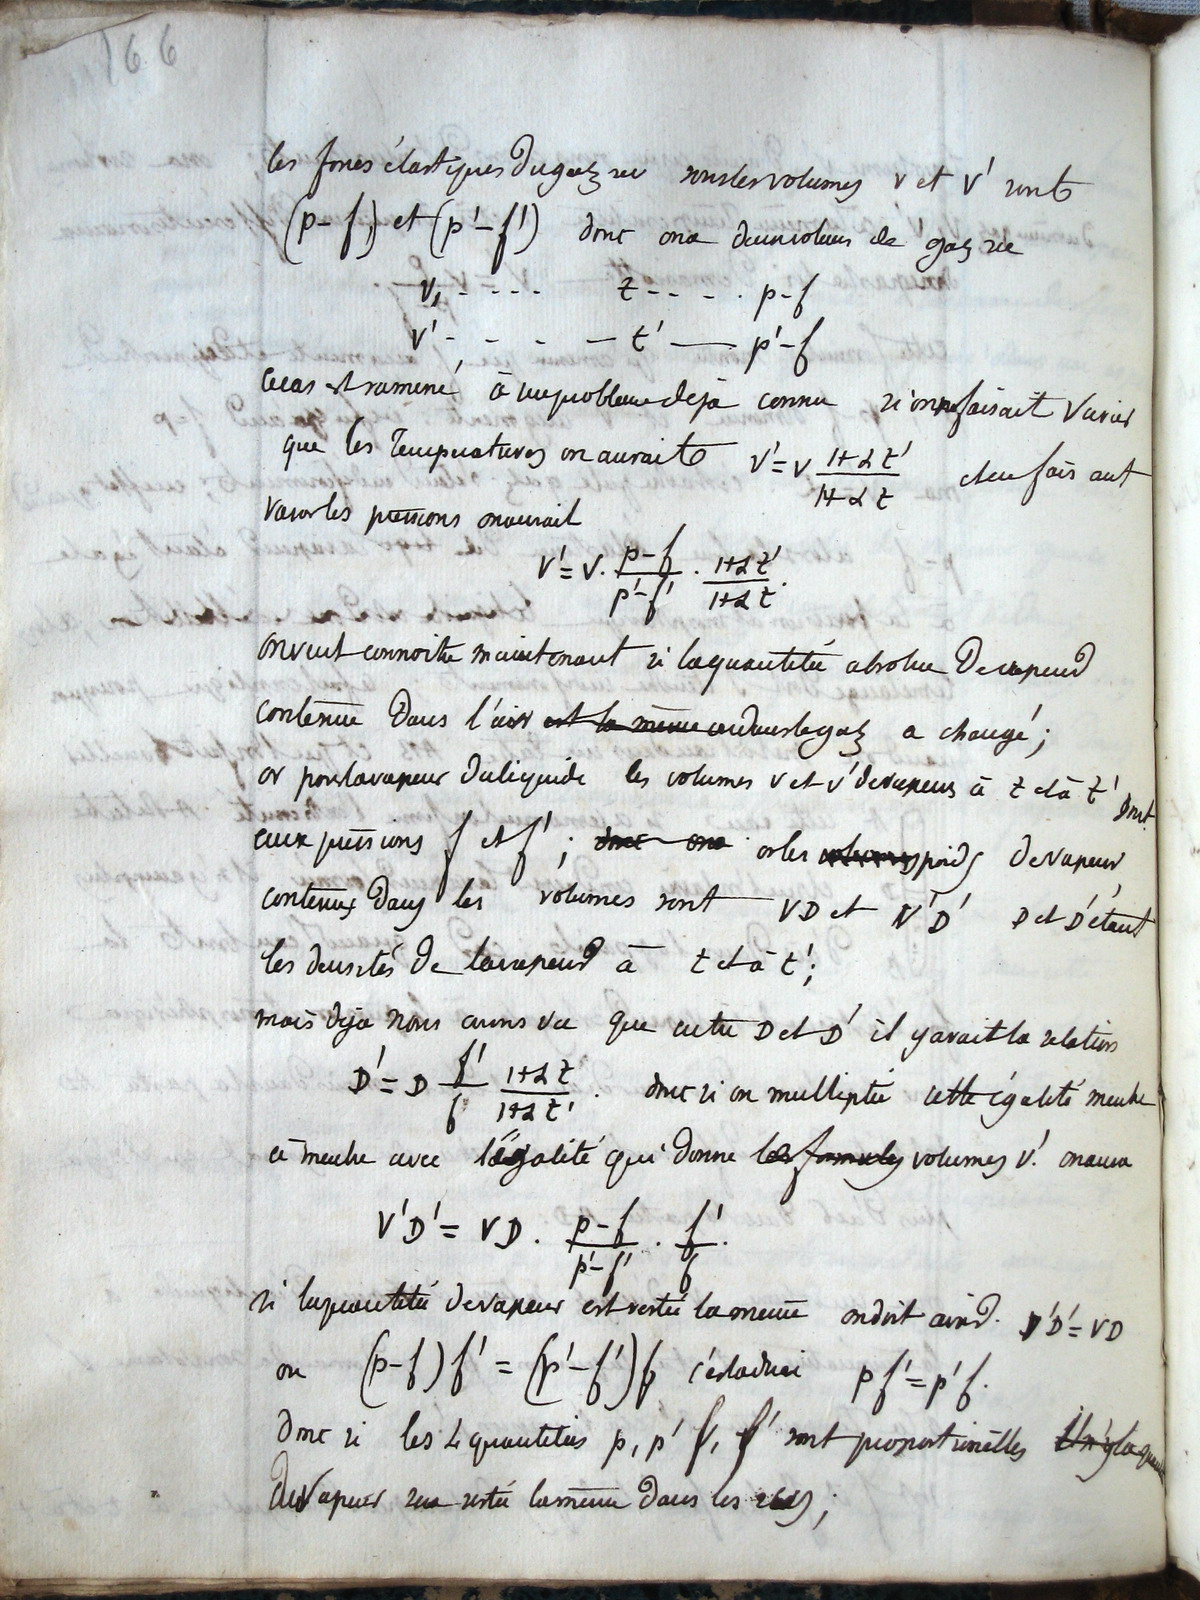 166
les forces élastiques du gaz sec sous les volumes v et v' sont
(p-f) et (p'-f') donc on a deux volumes de gaz sec
v, - - - - t - - - . p-f
v' - - - - t' — p'-f
ce cas est ramené à un problème déjà connu si on ne faisait varier
que les Températures on aurait v' = v (1+αt')/(1+αt) et en faisant
varier les pressions on aurait
v' = v. (p-f)/(p'-f') . (1+αt')/(1+αt).
on veut connoitre maintenant si la quantité absolue de vapeur
contenue dans l'air est la même ou dans le gaz a changé;
or pour la vapeur du liquide les volumes v et v' de vapeurs à t et à t' sont
aux pressions f et f'; donc on a or les volumes poids de vapeur
contenus dans les volumes sont VD et V'D' D et D' étant
les densités de la vapeur à t et à t';
mais déja nous avons vu que entre D et D' il y avait la relation
D' = D f'/f (1+αt)/(1+αt') . donc si on multiplie cette égalité membre
à membre avec l'égalité qui donne les formules volumes v'. on aura
V'D' = VD . (p-f)/(p'-f') . f'/f.
si la quantité de vapeur est restée la meme on doit avoir. V'D' = VD
ou (p-f) f' = (p'-f') f c'est a dire p f' = p' f.
donc si les 4 quantités p, p' f, f' sont proportionelles
de vapeur sera restée la même dans les